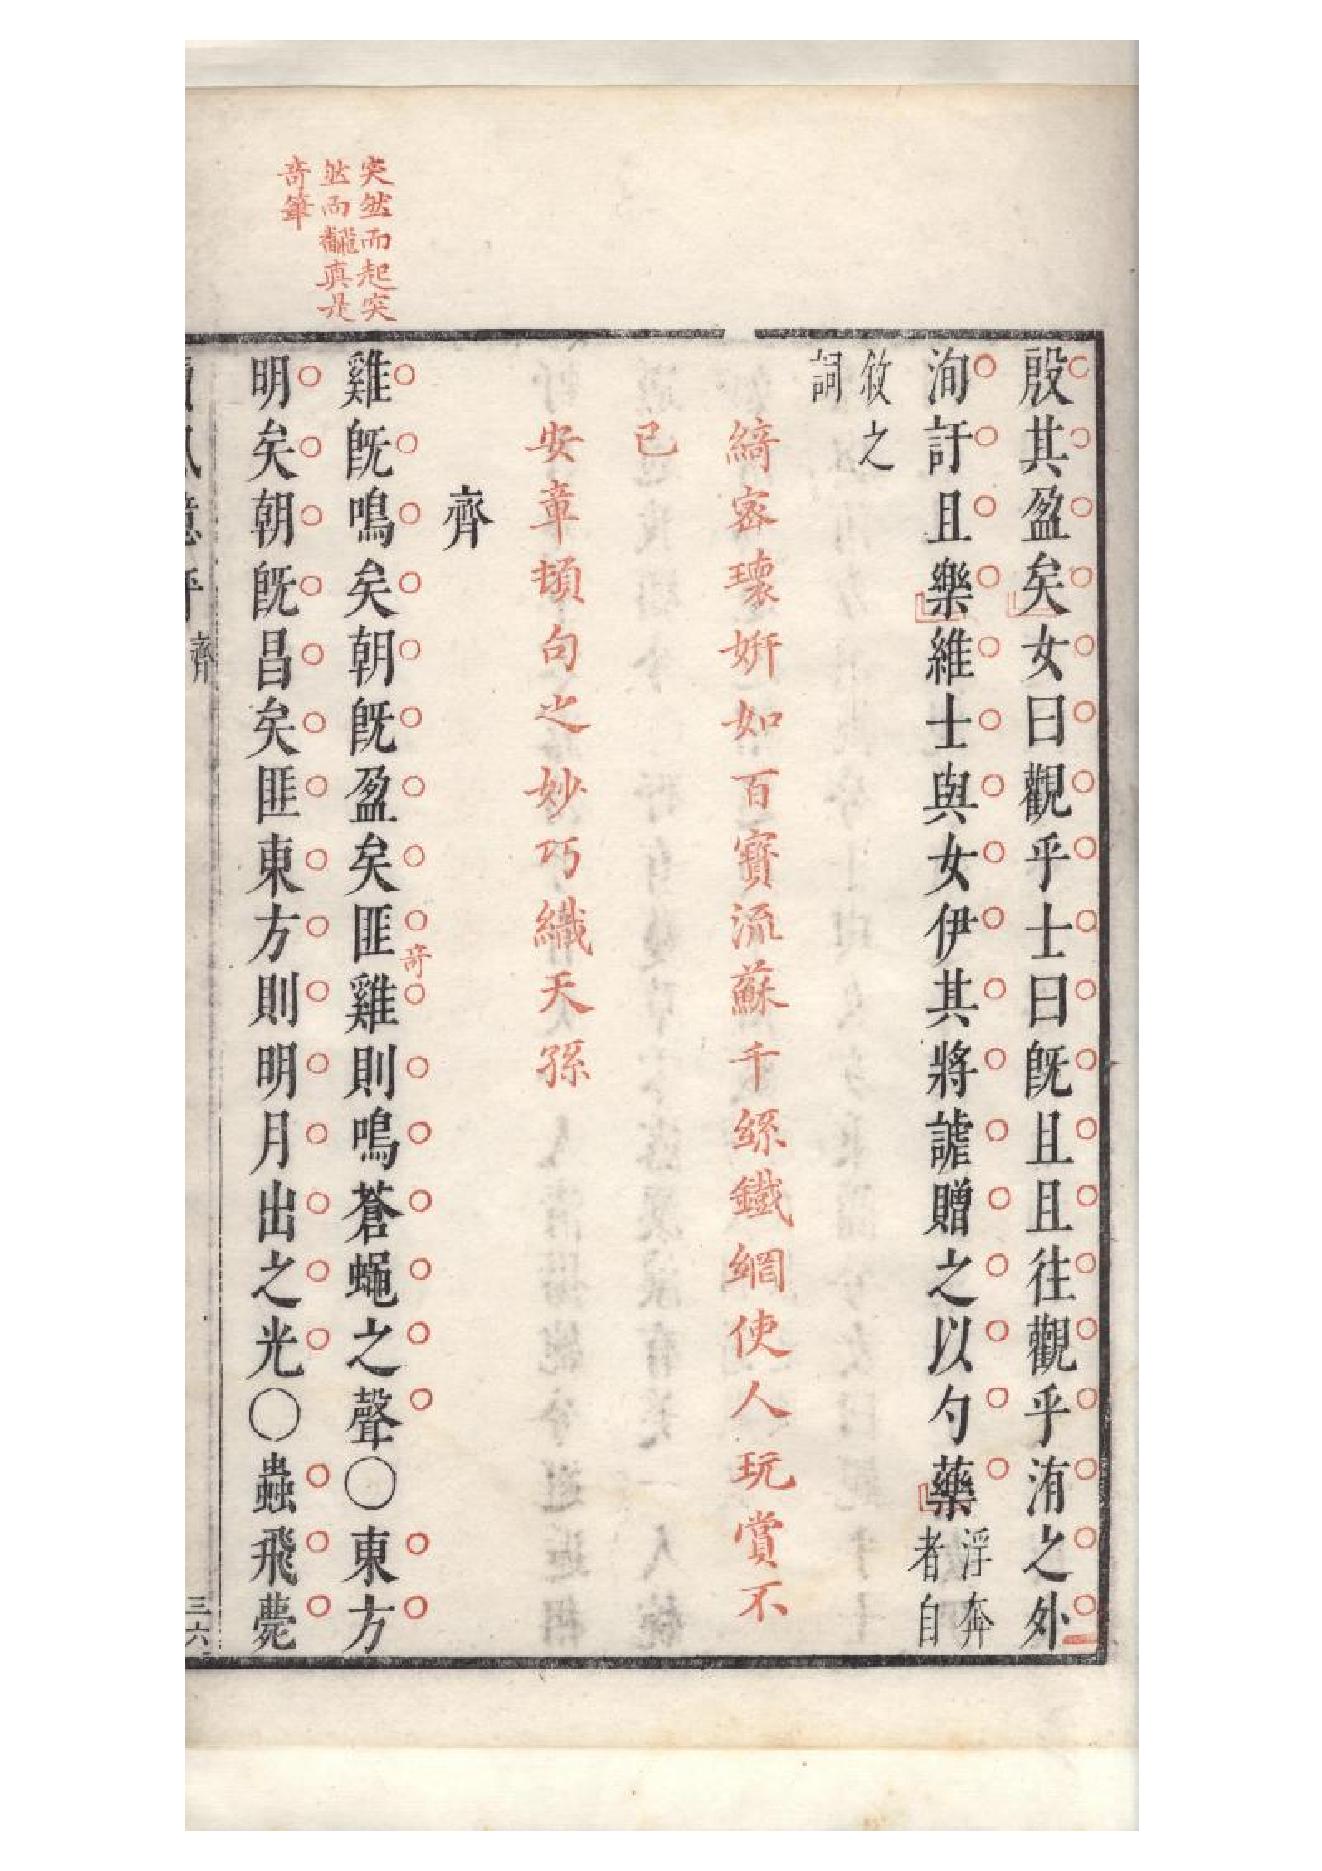 突然而起突
然而真是
奇筆
殷其盈矣女曰觀乎士曰旣且且往觀乎洧之外
洵訏且樂維士與女伊其將謔贈之以勺藥
淫奔
者自
敘之
詞
綺密瓌妍如百寶流蘇千絲鐵網使人玩賞不
已
安章頓句之妙巧織天孫
齊
奇
雞旣鳴矣朝旣盈矣匪雞則鳴蒼蠅之聲〇東方
明矣朝旣昌矣匪東方則明月出之光〇蟲飛薨
齊
三六